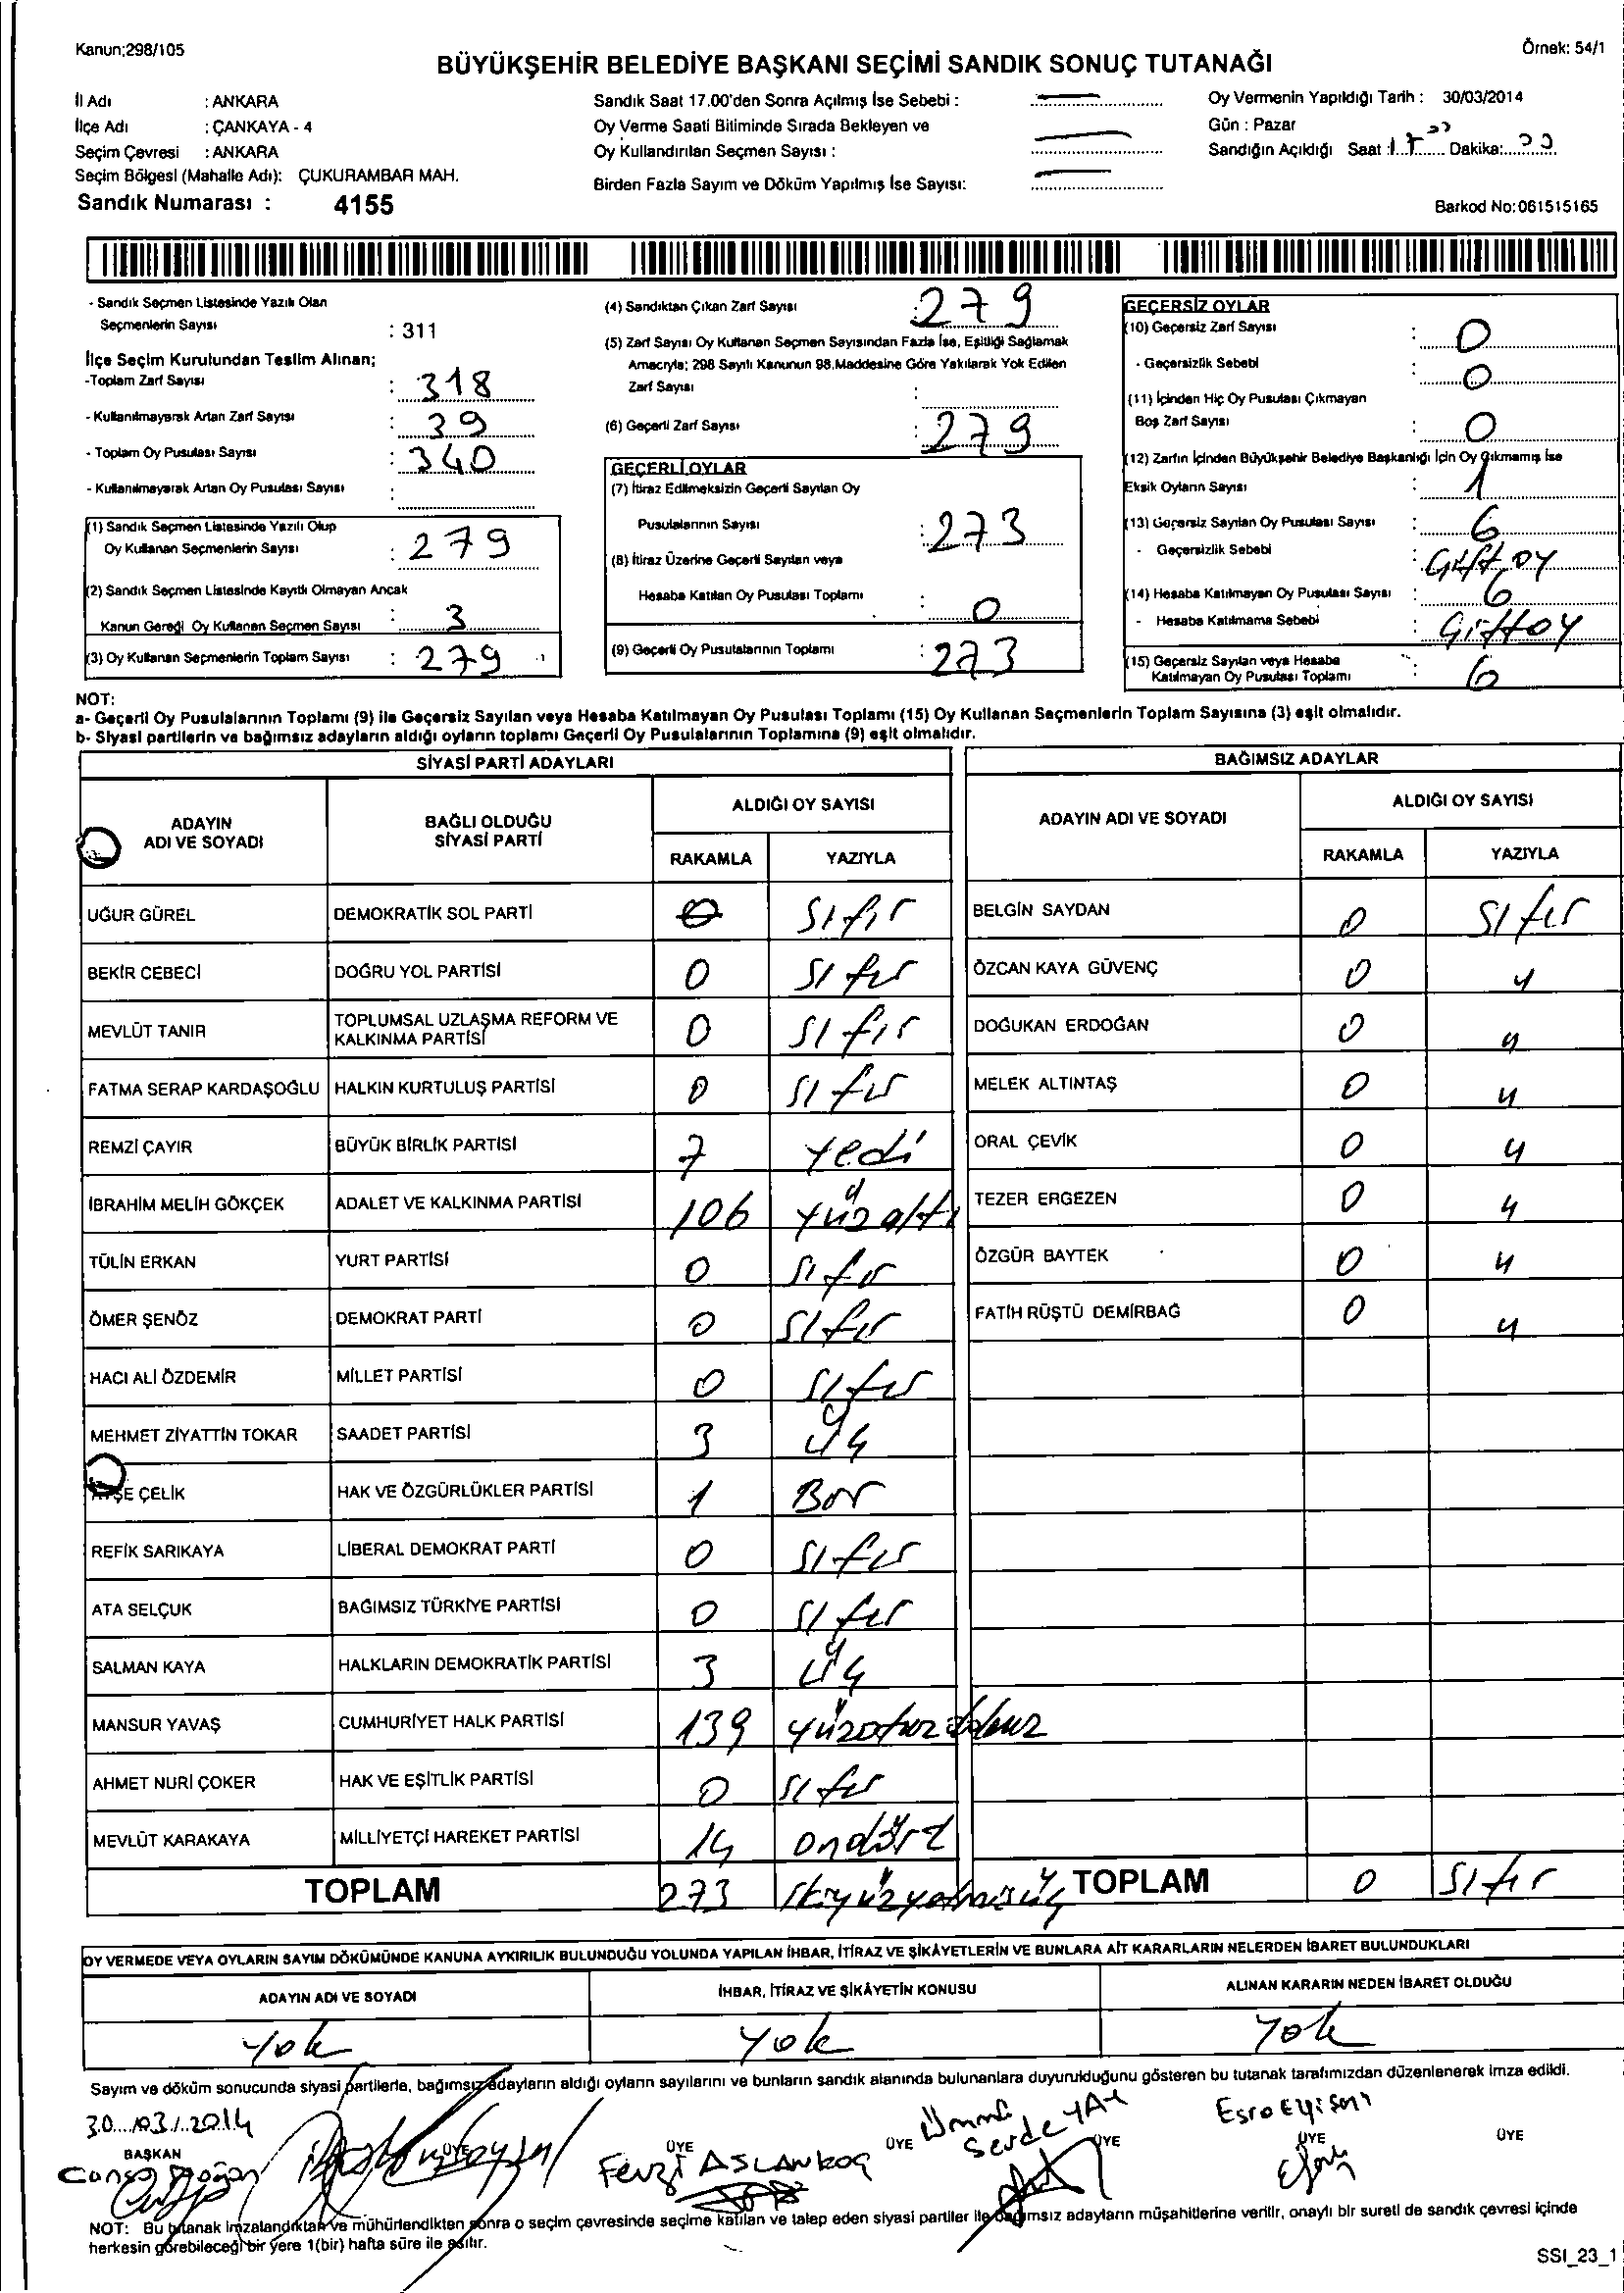 Kanun;298/105
Örnek: 54/1
BÜYÜKŞEHİR BELEDİYE BAŞKANI SEÇİMİ SANDIK SONUÇ TUTANAĞI
İl Adı : ANKARA
İlçe Adı : ÇANKAYA - 4
Seçim Çevresi : ANKARA
Seçim Bölgesi (Mahalle Adı): ÇUKURAMBAR MAH.
Sandık Numarası : 4155
Sandık Saat 17.00'den Sonra Açılmış İse Sebebi :
Oy Verme Saati Bitiminde Sırada Bekleyen ve
Oy Kullandırılan Seçmen Sayısı :
Birden Fazla Sayım ve Döküm Yapılmış İse Sayısı:
Oy Vermenin Yapıldığı Tarih : 30/03/2014
Gün : Pazar
Sandığın Açıklığı Saat : Dakika:
Barkod No:061515165
- Sandık Seçmen Listesinde Yazılı Olan
Seçmenlerin Sayısı : 311
İlçe Seçim Kurulundan Teslim Alınan;
-Toplam Zarf Sayısı : 318
- Kullanılmayarak Artan Zarf Sayısı : 39
- Toplam Oy Pusulası Sayısı : 340
- Kullanılmayarak Artan Oy Pusulası Sayısı :
(1) Sandık Seçmen Listesinde Yazılı Olup
Oy Kullanan Seçmenlerin Sayısı : 279
(2) Sandık Seçmen Listesinde Kayıtlı Olmayan Ancak
Kanun Gereği Oy Kullanan Seçmen Sayısı : 3
(3) Oy Kullanan Seçmenlerin Toplam Sayısı : 279
(4) Sandıktan Çıkan Zarf Sayısı : 279
(5) Zarf Sayısı Oy Kullanan Seçmen Sayısından Fazla İse, Eşitliği Sağlamak
Amacıyla; 298 Sayılı Kanunun 98.Maddesine Göre Yakılarak Yok Edilen
Zarf Sayısı :
(6) Geçerli Zarf Sayısı : 279
GEÇERLİ OYLAR
(7) İtiraz Edilmeksizin Geçerli Sayılan Oy
Pusulalarının Sayısı : 273
(8) İtiraz Üzerine Geçerli Sayılan veya
Hesaba Katılan Oy Pusulası Toplamı : 0
(9) Geçerli Oy Pusulalarının Toplamı : 273
GEÇERSİZ OYLAR
(10) Geçersiz Zarf Sayısı : 0
- Geçersizlik Sebebi : 0
(11) İçinden Hiç Oy Pusulası Çıkmayan
Boş Zarf Sayısı : 0
(12) Zarfın İçinden Büyükşehir Belediye Başkanlığı İçin Oy Çıkmamış İse
Eksik Oyların Sayısı : 1
(13) Geçersiz Sayılan Oy Pusulası Sayısı : 6
- Geçersizlik Sebebi : Gift oy
(14) Hesaba Katılmayan Oy Pusulası Sayısı : 6
- Hesaba Katılmama Sebebi : Gift oy
(15) Geçersiz Sayılan veya Hesaba
Katılmayan Oy Pusulası Toplamı : 6
NOT:
a- Geçerli Oy Pusulalarının Toplamı (9) ile Geçersiz Sayılan veya Hesaba Katılmayan Oy Pusulası Toplamı (15) Oy Kullanan Seçmenlerin Toplam Sayısına (3) eşit olmalıdır.
b- Siyasi partilerin ve bağımsız adayların aldığı oyların toplamı Geçerli Oy Pusulalarının Toplamına (9) eşit olmalıdır.
SİYASİ PARTİ ADAYLARI
ADAYIN ADI VE SOYADI
BAĞLI OLDUĞU SİYASİ PARTİ
ALDIĞI OY SAYISI
RAKAMLA YAZIYLA
UĞUR GÜREL DEMOKRATİK SOL PARTİ 0 Sıfır
BEKİR CEBECİ DOĞRU YOL PARTİSİ 0 Sıfır
MEVLÜT TANIR TOPLUMSAL UZLAŞMA REFORM VE KALKINMA PARTİSİ 0 Sıfır
FATMA SERAP KARDAŞOĞLU HALKIN KURTULUŞ PARTİSİ 0 Sıfır
REMZİ ÇAYIR BÜYÜK BİRLİK PARTİSİ 7 Yedi
İBRAHİM MELİH GÖKÇEK ADALET VE KALKINMA PARTİSİ 106 Yüzaltı
TÜLİN ERKAN YURT PARTİSİ 0 Sıfır
ÖMER ŞENÖZ DEMOKRAT PARTİ 0 Sıfır
HACI ALİ ÖZDEMİR MİLLET PARTİSİ 0 Sıfır
MEHMET ZİYATTİN TOKAR SAADET PARTİSİ 3 Üç
AYŞE ÇELİK HAK VE ÖZGÜRLÜKLER PARTİSİ 1 Bir
REFİK SARIKAYA LİBERAL DEMOKRAT PARTİ 0 Sıfır
ATA SELÇUK BAĞIMSIZ TÜRKİYE PARTİSİ 0 Sıfır
SALMAN KAYA HALKLARIN DEMOKRATİK PARTİSİ 3 Üç
MANSUR YAVAŞ CUMHURİYET HALK PARTİSİ 139 yüzotuzdokuz
AHMET NURİ ÇOKER HAK VE EŞİTLİK PARTİSİ 0 Sıfır
MEVLÜT KARAKAYA MİLLİYETÇİ HAREKET PARTİSİ 14 ondört
TOPLAM 273 ikiyüzyetmişüç
BAĞIMSIZ ADAYLAR
ADAYIN ADI VE SOYADI
ALDIĞI OY SAYISI
RAKAMLA YAZIYLA
BELGİN SAYDAN 0 Sıfır
ÖZCAN KAYA GÜVENÇ 0 "
DOĞUKAN ERDOĞAN 0 "
MELEK ALTINTAŞ 0 "
ORAL ÇEVİK 0 "
TEZER ERGEZEN 0 "
ÖZGÜR BAYTEK 0 "
FATİH RÜŞTÜ DEMİRBAĞ 0 "
TOPLAM 0 Sıfır
OY VERMEDE VEYA OYLARIN SAYIM DÖKÜMÜNDE KANUNA AYKIRILIK BULUNDUĞU YOLUNDA YAPILAN İHBAR, İTİRAZ VE ŞİKÂYETLERİN VE BUNLARA AİT KARARLARIN NELERDEN İBARET BULUNDUKLARI
ADAYIN ADI VE SOYADI İHBAR, İTİRAZ VE ŞİKÂYETİN KONUSU ALINAN KARARIN NEDEN İBARET OLDUĞU
Yok Yok Yok
Sayım ve döküm sonucunda siyasi partilerle, bağımsız adayların aldığı oyların sayılarını ve bunların sandık alanında bulunanlara duyurulduğunu gösteren bu tutanak tarafımızdan düzenlenerek imza edildi.
30.../03./.2014
BAŞKAN ÜYE ÜYE ÜYE ÜYE ÜYE ÜYE
Fevzi ASLANKOÇ
NOT: Bu tutanak imzalandıktan ve mühürlendikten sonra o seçim çevresinde seçime katılan ve talep eden siyasi partiler ile bağımsız adayların müşahitlerine verilir, onaylı bir sureti de sandık çevresi içinde
herkesin görebileceği bir yere 1(bir) hafta süre ile asılır.
SSI_23_1